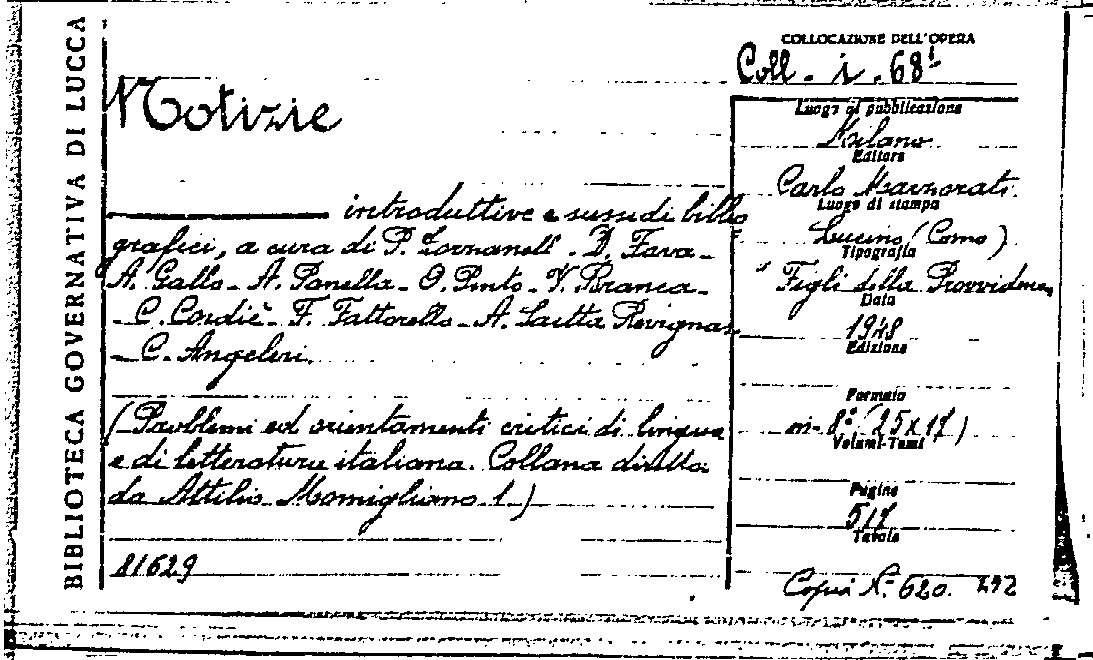 BIBLIOTECA GOVERNATIVA DI LUCCA
COLLOCAZIONE DELL'OPERA
Coll. i. 68¹
Notizie
introduttive e sussidi biblio
grafici, a cura di P. Fornanelli - D. Fava -
A. Gallo - A. Panella - O. Pinto - V. Branca -
- C. Cordiè - F. Fattorello - A. Saitta Revignas
- C. Angeleri.
(Problemi ed orientamenti critici di lingua
e di letteratura italiana. Collana diretta
da Attilio Momigliano 1.)
81629
Luogo di pubblicazione
Milano
Editore
Carlo Marzorati
Luogo di stampa
Lucino (Como)
Tipografia
"Figli della Provvidenza
Data
1948
Edizione
Formato
in-8° (25x17)
Volumi-Tomi
Pagine
517
Tavole
Copia N. 620.